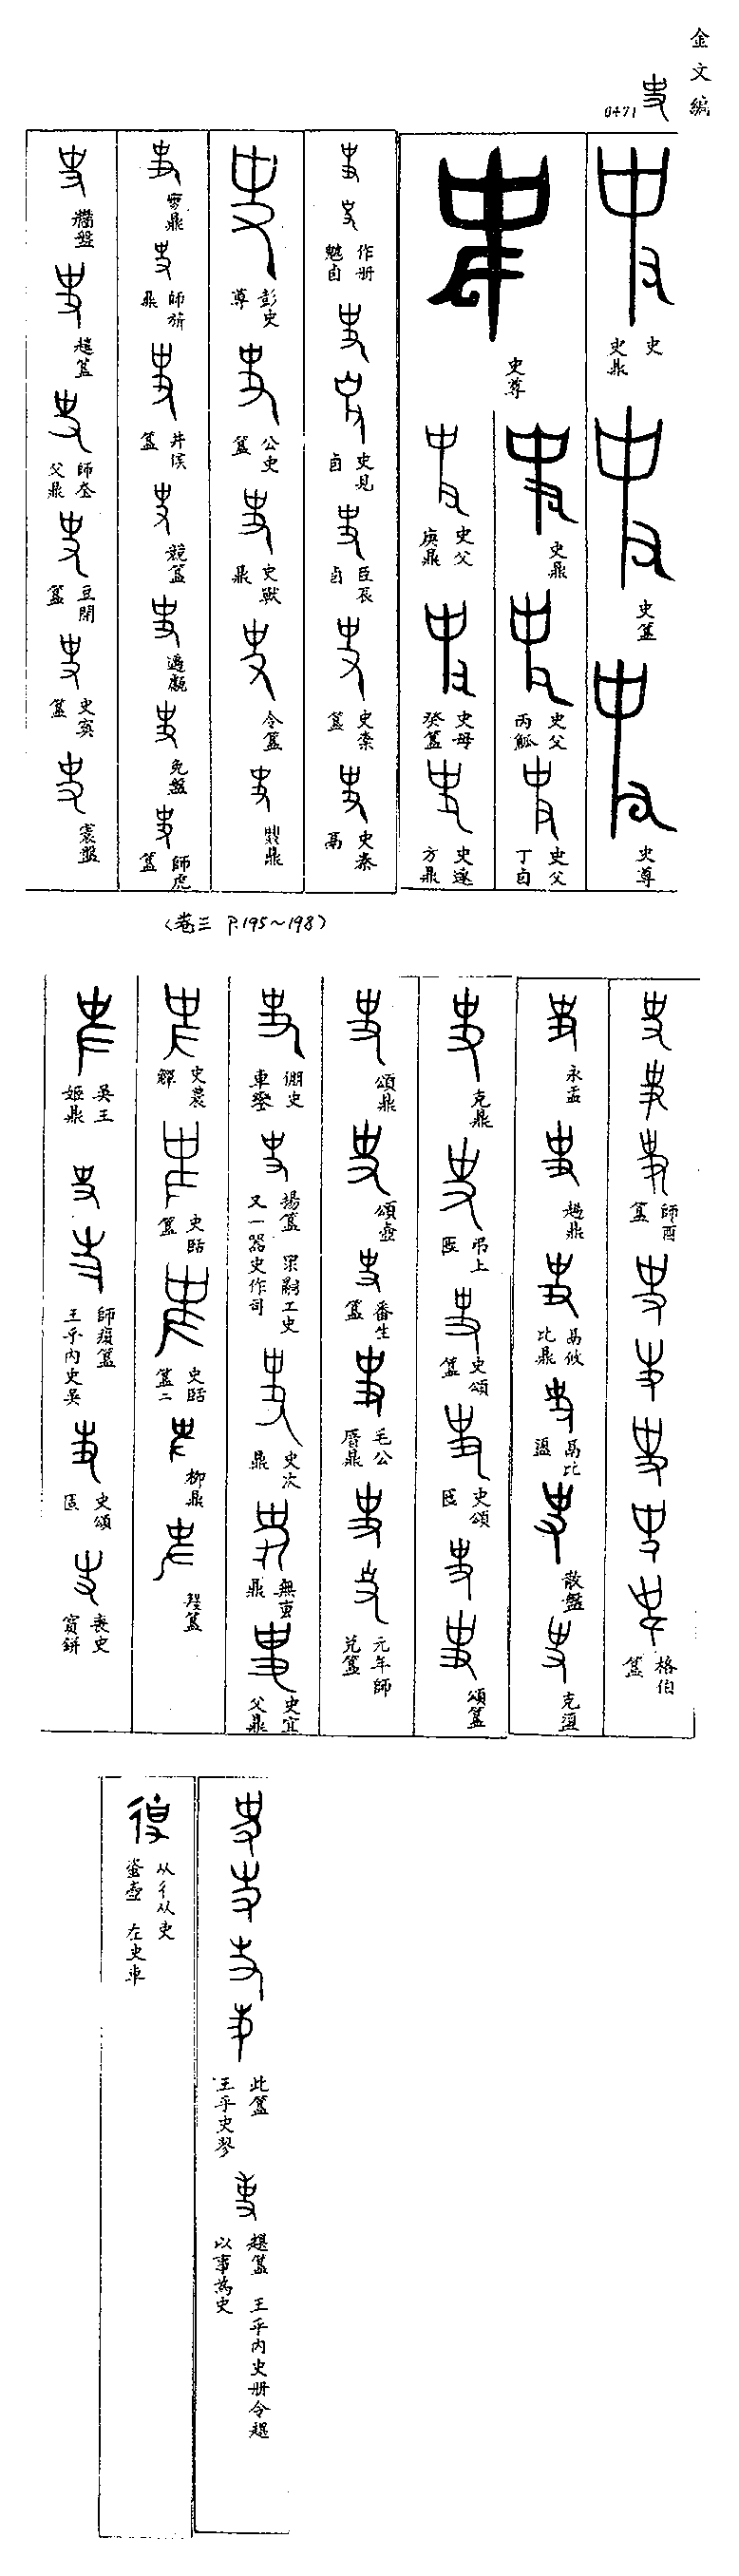 金文編
史
0471
史
史鼎
史簋
史尊
史尊
史鼎
史父
丙觚
史父
丁卣
史父
庚鼎
史母
癸簋
史逨
方鼎
作册
魖卣
史見
卣
臣辰
卣
史𡖊
簋
史秦
鬲
彭史
尊
公史
簋
史獸
鼎
令簋
鼎
鼎
師旂
鼎
井侯
簋
競簋
免盤
師虎
簋
牆盤
趞簋
師𡘇
父鼎
豆閉
簋
史寏
簋
㝨盤
〈卷三 P.195～198〉
師酉
簋
格伯
簋
永盂
趞鼎
鬲攸
比鼎
鬲比
盨
散盤
克盨
克鼎
弔上
匜
史頌
簋
史頌
匜
頌簋
頌鼎
頌壺
番生
簋
毛公
㫗鼎
元年師
兌簋
倗史
車鑾
揚簋 眔嗣工史
又一器史作司
史次
鼎
無叀
鼎
史宜
父鼎
史農
觶
史䛗
簋
史䛗
簋二
柳鼎
簋
吳王
姬鼎
師𤸫簋
王乎內史吳
史頌
匜
喪史
𡧛鉼
此簋
王乎史翏
趩簋 王乎內史册令趩
以事為史
从彳从史
𧊒壺 左史車